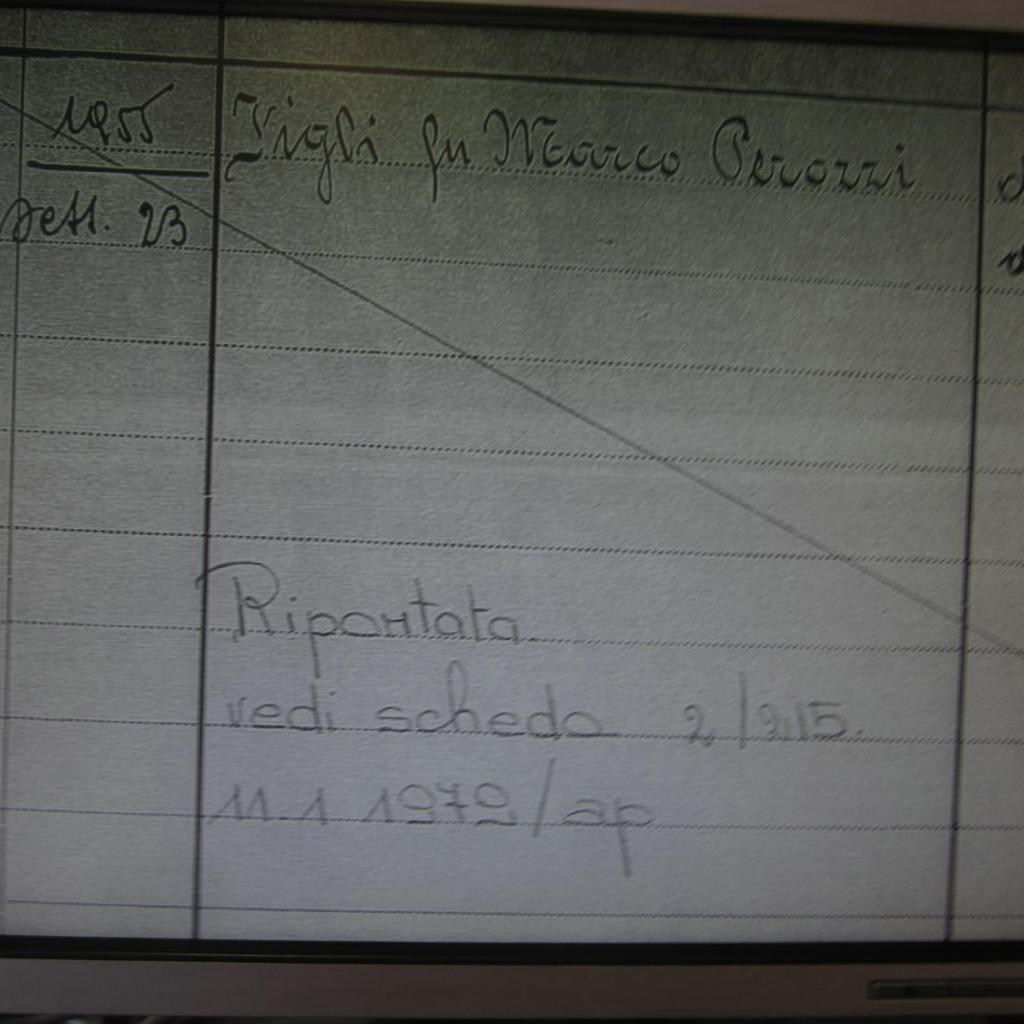 1955
Sett. 23
Figli fu Marco Perozzi
Riportata
vedi scheda 2/915.
11.1 1972/ap